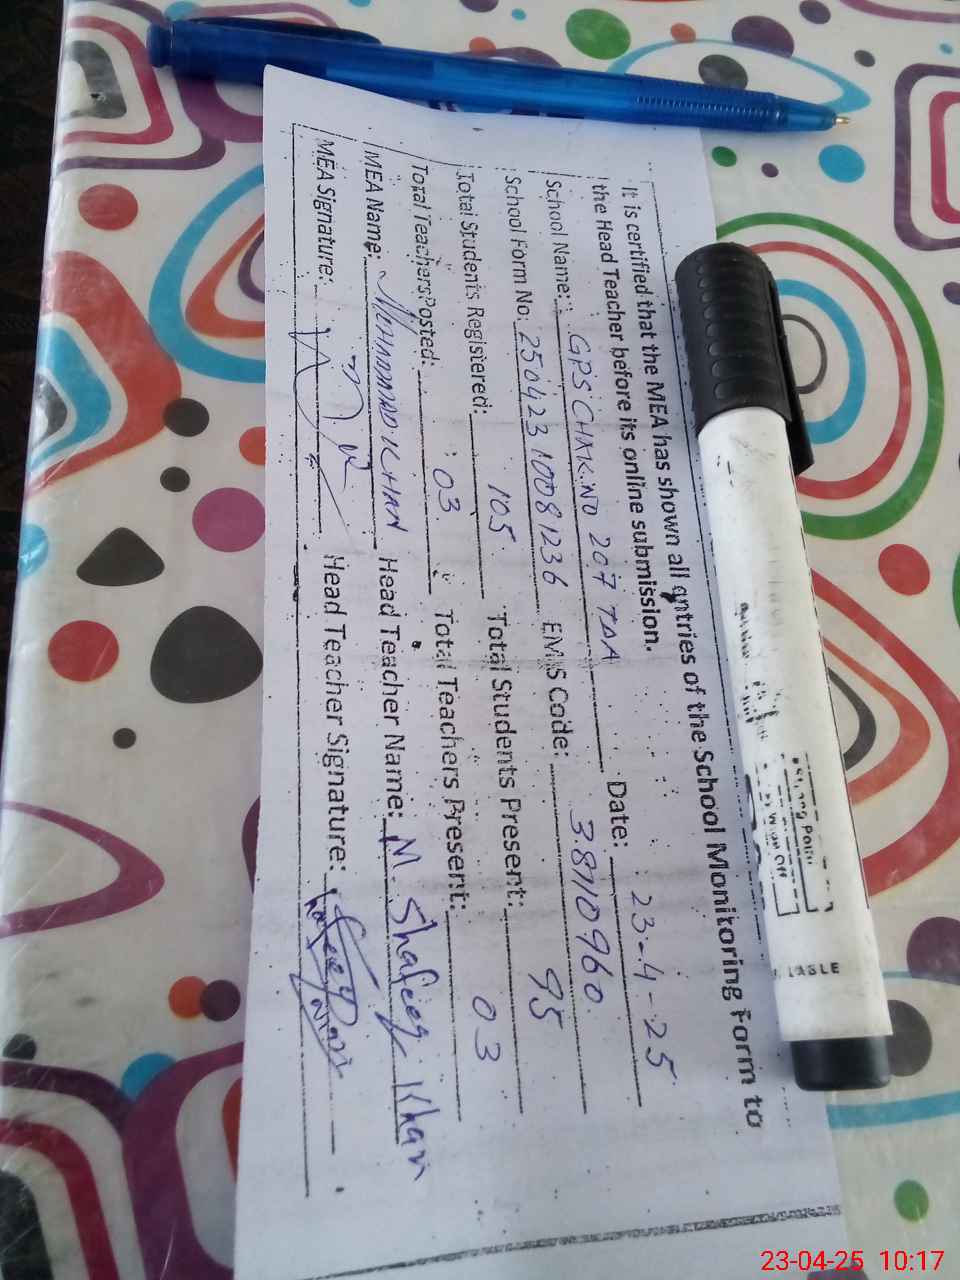 It is certified that the MEA has shown all entries of the School Monitoring Form to
the Head Teacher before its online submission.
School Name: GPS CHAK.NO 207 TDA Date: 23-4-25
School Form No: 250423 10081236 EMIS Code: 38110960
Total Students Registered: 105 Total Students Present: 95
Total Teachers Posted: 03 Total Teachers Present: 03
MEA Name: MUHAMMAD KHAN Head Teacher Name: M. Shafeeq Khan
MEA Signature: Head Teacher Signature:
23-04-25 10:17